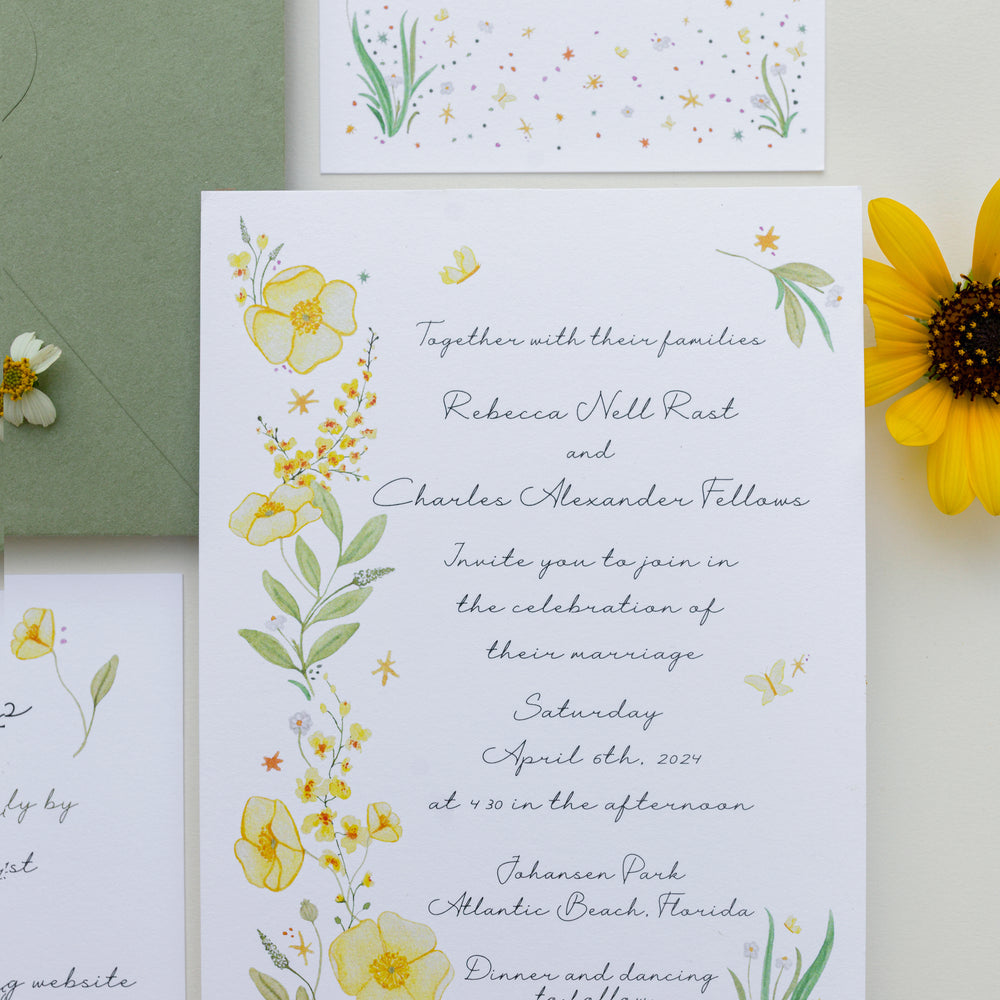 Together with their families
Rebecca Nell Rast
and
Charles Alexander Fellows
Invite you to join in
the celebration of
their marriage
Saturday
April 6th, 2024
at 4 30 in the afternoon
Johansen Park
Atlantic Beach, Florida
Dinner and dancing
to follow
by
website